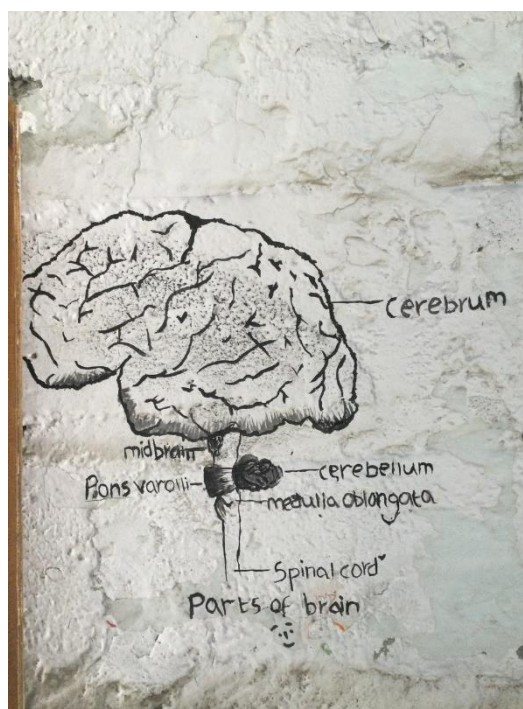 cerebrum
midbrain
Pons varolli
cerebellum
medulla oblongata
Spinal cord
Parts of brain